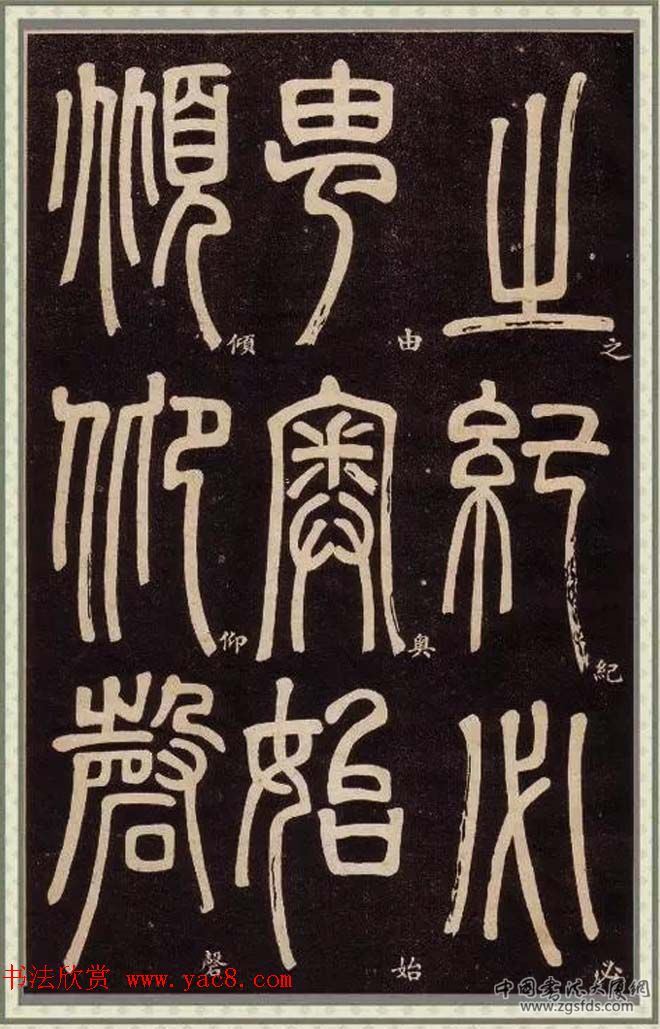 之紀必
由奧始
傾仰磬
之紀必
由奥始
傾仰磬
书法欣赏 www.yac8.com
中国书法大厦网
www.zgsfds.com